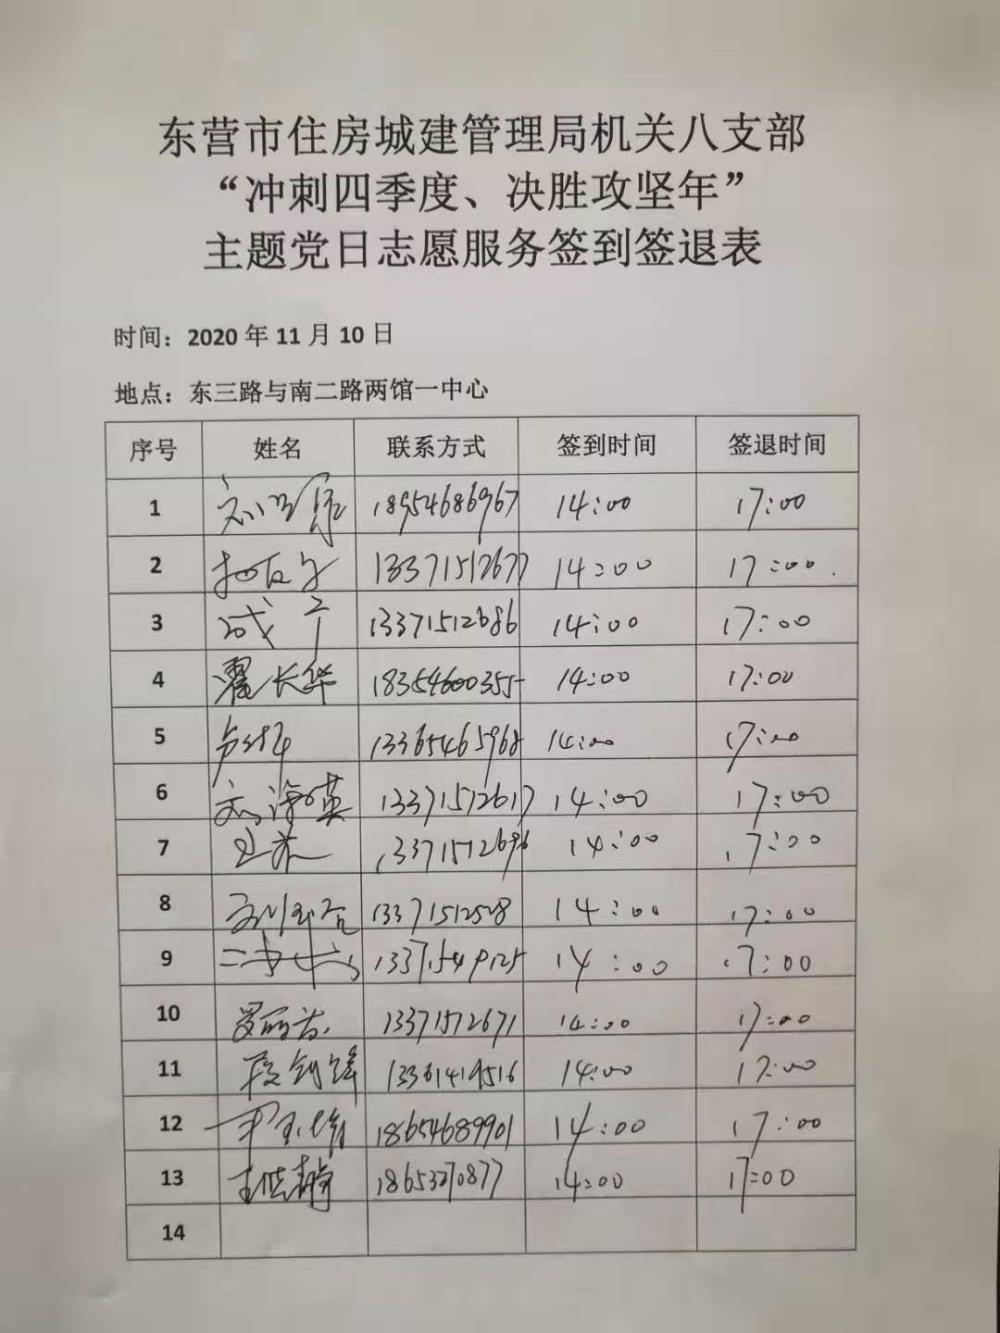 东营市住房城建管理局机关八支部
“冲刺四季度、决胜攻坚年”
主题党日志愿服务签到签退表
时间：2020 年 11 月 10 日
地点：东三路与南二路两馆一中心
序号 姓名 联系方式 签到时间 签退时间
1 18954686967 14:00 17:00
2 13371512677 14:00 17:00.
3 13371512686 14:00 17:00
4 翟长华 18354600355 14:00 17:00
5 13365465968 14:00 17:00
6 刘海英 13371512617 14:00 17:00
7 13371512696 14:00 17:00
8 13371512528 14:00 17:00
9 14:00 17:00
10 13371512671 14:00 17:00
11 段剑锋 13361419516 14:00 17:00
12 18654689901 14:00 17:00
13 14:00 17:00
14